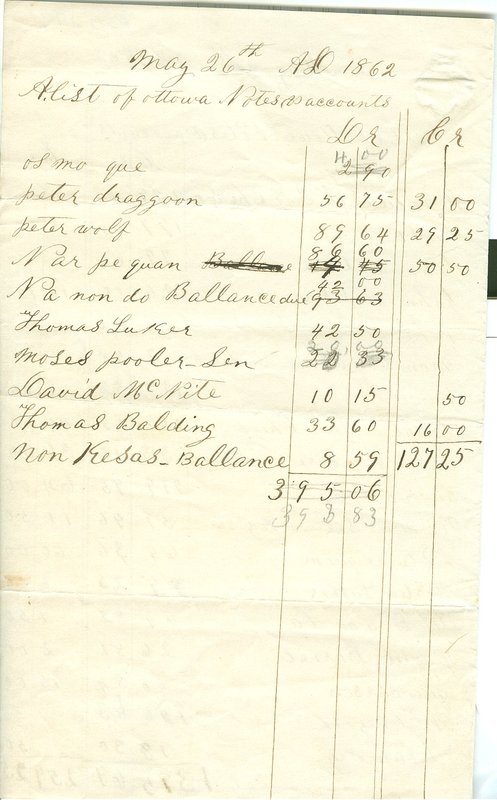 May 26th AD 1862
A list of ottowa Notes & accounts
Dr Cr
os mo que 4 00 2 90
peter draggoon 56 75 31 00
peter wolf 89 64 29 25
Nar pe quan Ballance 86 60 50 50
Na non do Ballance due 42 00 93 63
Thomas Luker 42 50
Moses pooler - Sen 33
David McNite 10 15 50
Thomas Balding 33 60 16 00
Non Kesas - Ballance 8 59 127 25
395 06
83